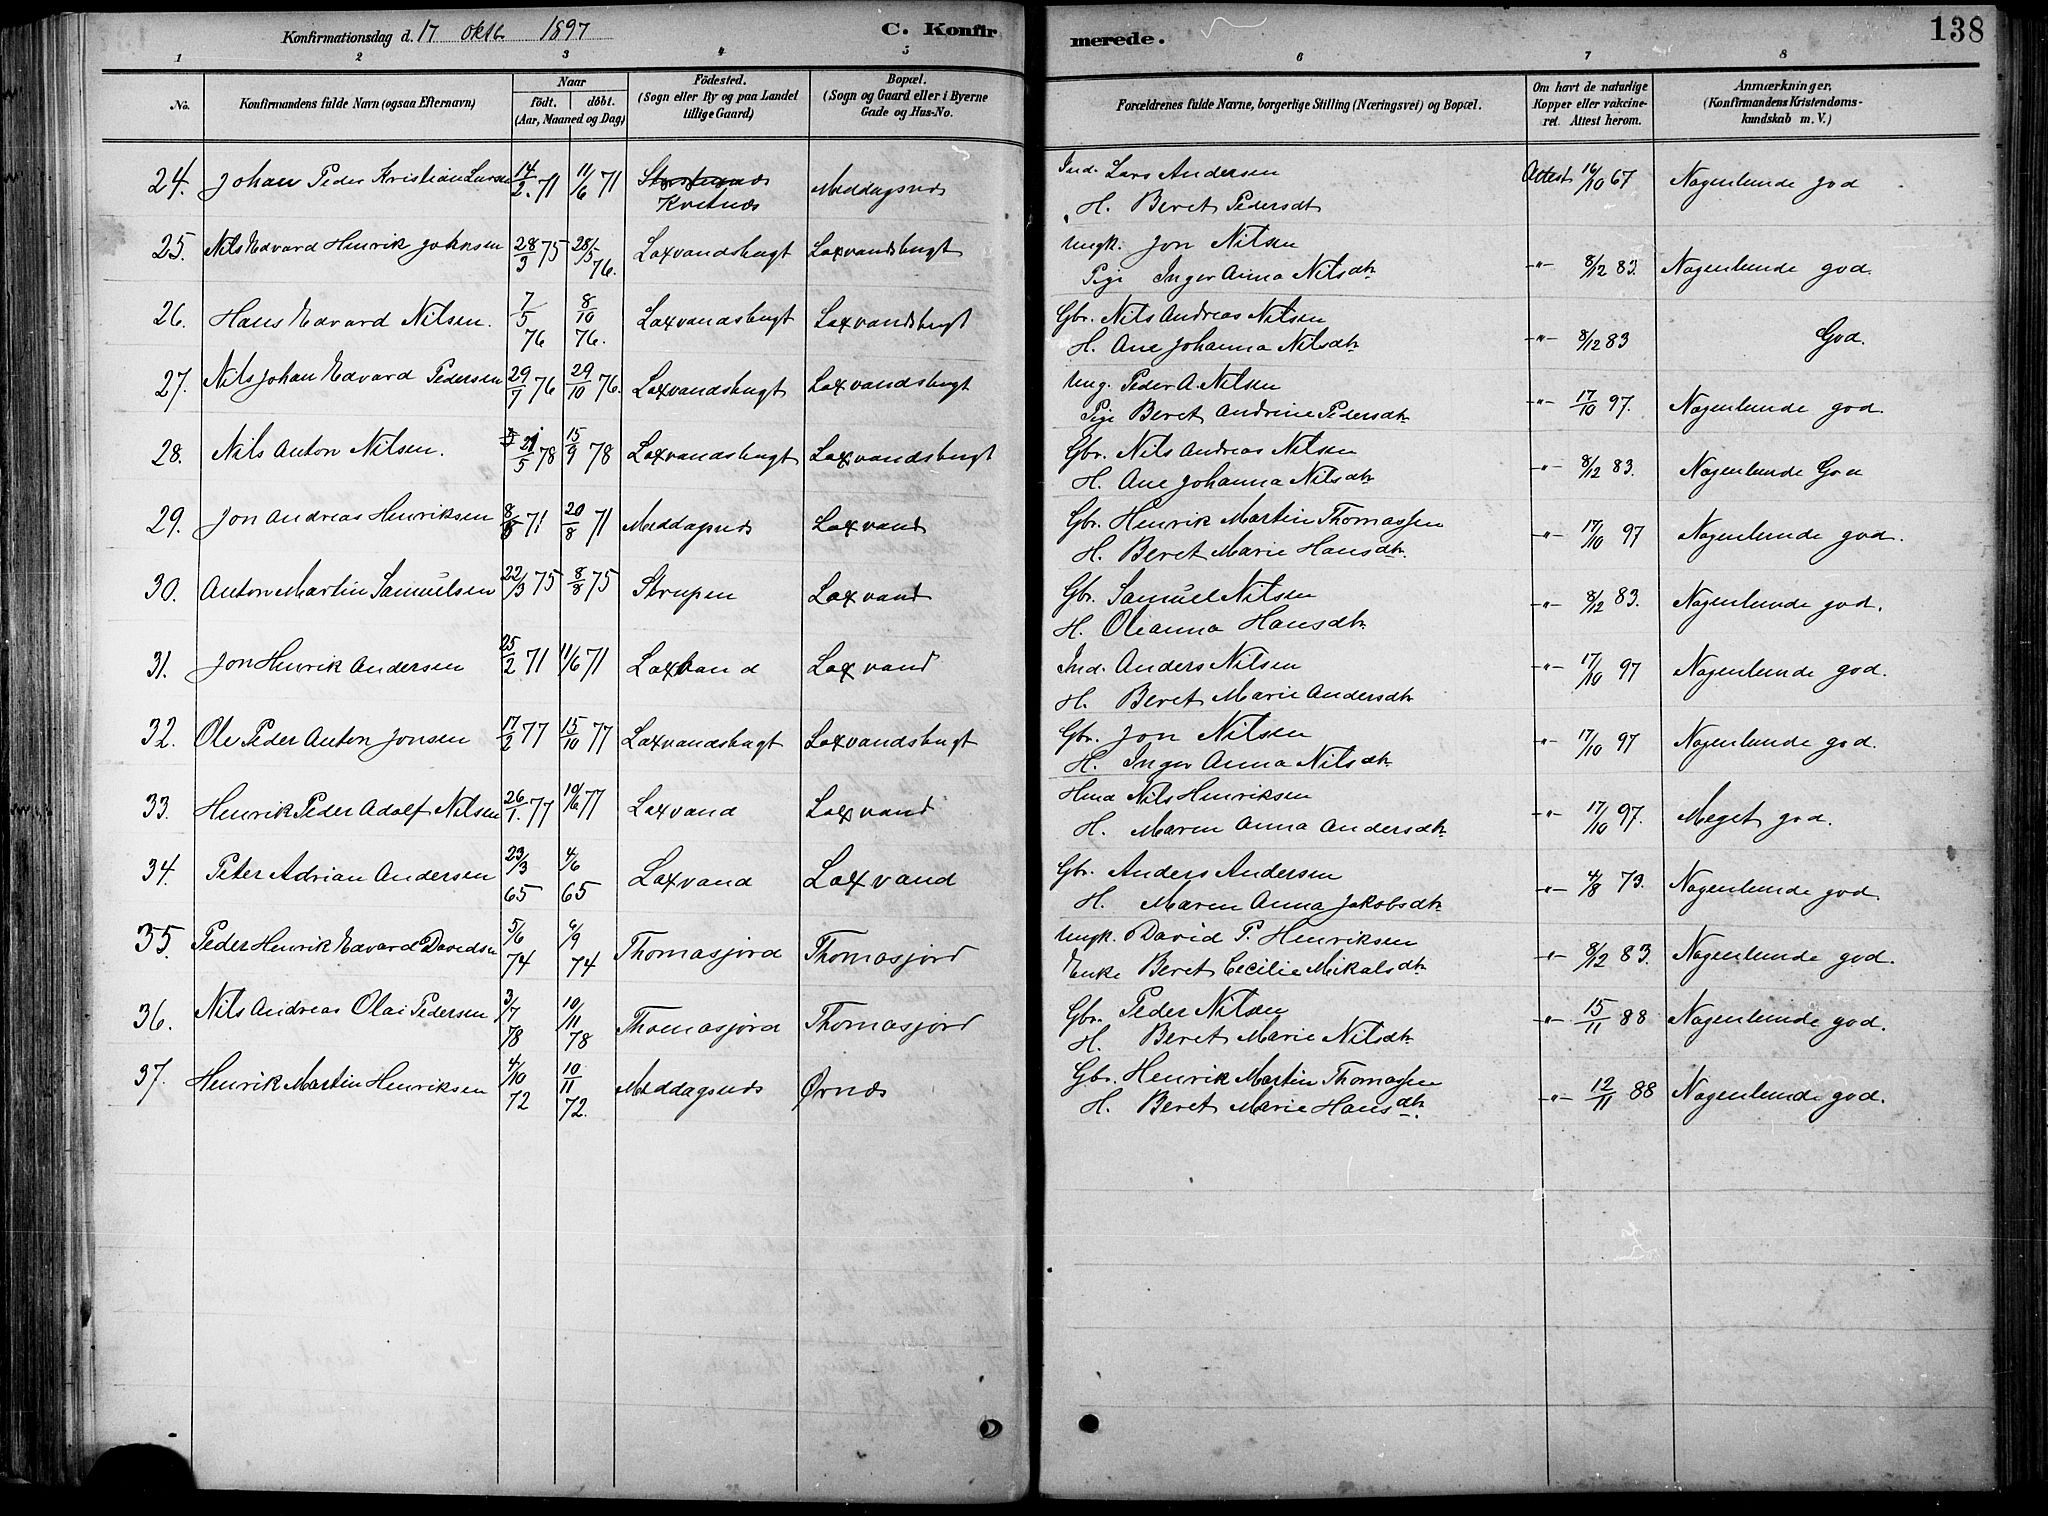 138
Konfirmationsdag d. 17 oktb. 1897 C. Konfirmerede.
1 2 3 4 5 6 7 8
No. Konfirmandens fulde Navn (ogsaa Efternavn) Naar födt. döbt. (Aar, Maaned og Dag) Födested. (Sogn eller By og paa Landet tillige Gaard) Bopæl. (Sogn og Gaard eller i Byerne Gade og Hus-No. Forældrenes fulde Navne, borgerlige Stilling (Næringsvei) og Bopæl. Om havt de naturlige Kopper eller vakcineret. Attest herom. Anmærkninger. (Konfirmandens Kristendomskundskab m. V.)
24. Johan Peder Kristian Larsen 14/2. 71 11/6 71 Kvitnæs Meddagsnæs Ind. Lars Andersen Attest 16/10 67 Nogenlunde god
H. Beret Pedersdt
25. Nils Edvard Henrik Johnsen 28/3 75 28/5 76. Laxvandsbugt Laxvandsbugt Ungk. Jon Nilsen
Pige Inger Anna Nilsdtr -"- 8/12 83. Nogenlunde god.
26. Hans Edvard Nilsen. 7/5 76 8/10 76. Laxvandsbugt Laxvandsbugt Gbr. Nils Andreas Nilsen
H. Ane Johanna Nilsdtr -"- 8/12 83 God.
27. Nils Johan Edvard Pedersen 29/7 76 29/10 76. Laxvandsbugt Laxvandsbugt Ung. Peder A. Nilsen
Pige Beret Andrine Pedersdtr -"- 17/10 97. Nogenlunde god.
28. Nils Anton Nilsen. 21/5 78 15/9 78 Laxvandsbugt Laxvandsbugt Gbr. Nils Andreas Nilsen
H. Ane Johanna Nilsdtr -"- 8/12 83. Nogenlunde God
29. Jon Andreas Henriksen 8/5 71 20/8 71 Meddagsnæs Laxvand Gbr. Henrik Martin Thomassen
H. Beret Marie Hansdtr. -"- 17/10 97 Nogenlunde god.
30. Anton Martin Samuelsen 22/3 75 8/8 75 Strupen Laxvand Gbr. Samuel Nilsen
H. Oleanna Hansdtr. -"- 8/12 83. Nogenlunde god.
31. Jon Henrik Andersen 25/2 71 11/6 71 Laxvand Laxvand Ind. Anders Nilsen
H. Beret Marie Andersdtr -"- 17/10 97 Nogenlunde god.
32. Ole Peder Anton Jonsen 17/2 77 15/10 77 Laxvandsbugt Laxvandsbugt Gbr. Jon Nilsen
H. Inger Anna Nilsdtr -"- 17/10 97 Nogenlunde god.
33. Henrik Peder Adolf Nilsen 26/1. 77 10/6 77 Laxvand Laxvand Nils Henriksen
H. Maren Anna Andersdtr -"- 17/10 97. Meget god.
34. Peter Adrian Andersen 23/3 65 4/6 65 Laxvand Laxvand Gbr. Anders Andersen
H. Maren Anna Jakobsdtr -"- 4/8 73. Nogenlunde god
35. Peder Henrik Edvard Davidsen 5/6 74 6/9 74 Thomasjord Thomasjord Ungk. David P. Henriksen
Enke Beret Cecilie Mikalsdtr -"- 8/12 83. Nogenlunde god.
36. Nils Andreas Olai Pedersen 3/7 78 10/11 78 Thomasjord Thomasjord Gbr. Peder Nilsen
H. Beret Marie Nilsdtr. -"- 15/11 88 Nogenlunde god.
37. Henrik Martin Henriksen 4/10 72 10/11 72. Meddagsnæs Ørnæs Gbr. Henrik Martin Thomassen
H. Beret Marie Hansdtr. -"- 12/11 88 Nogenlunde god.